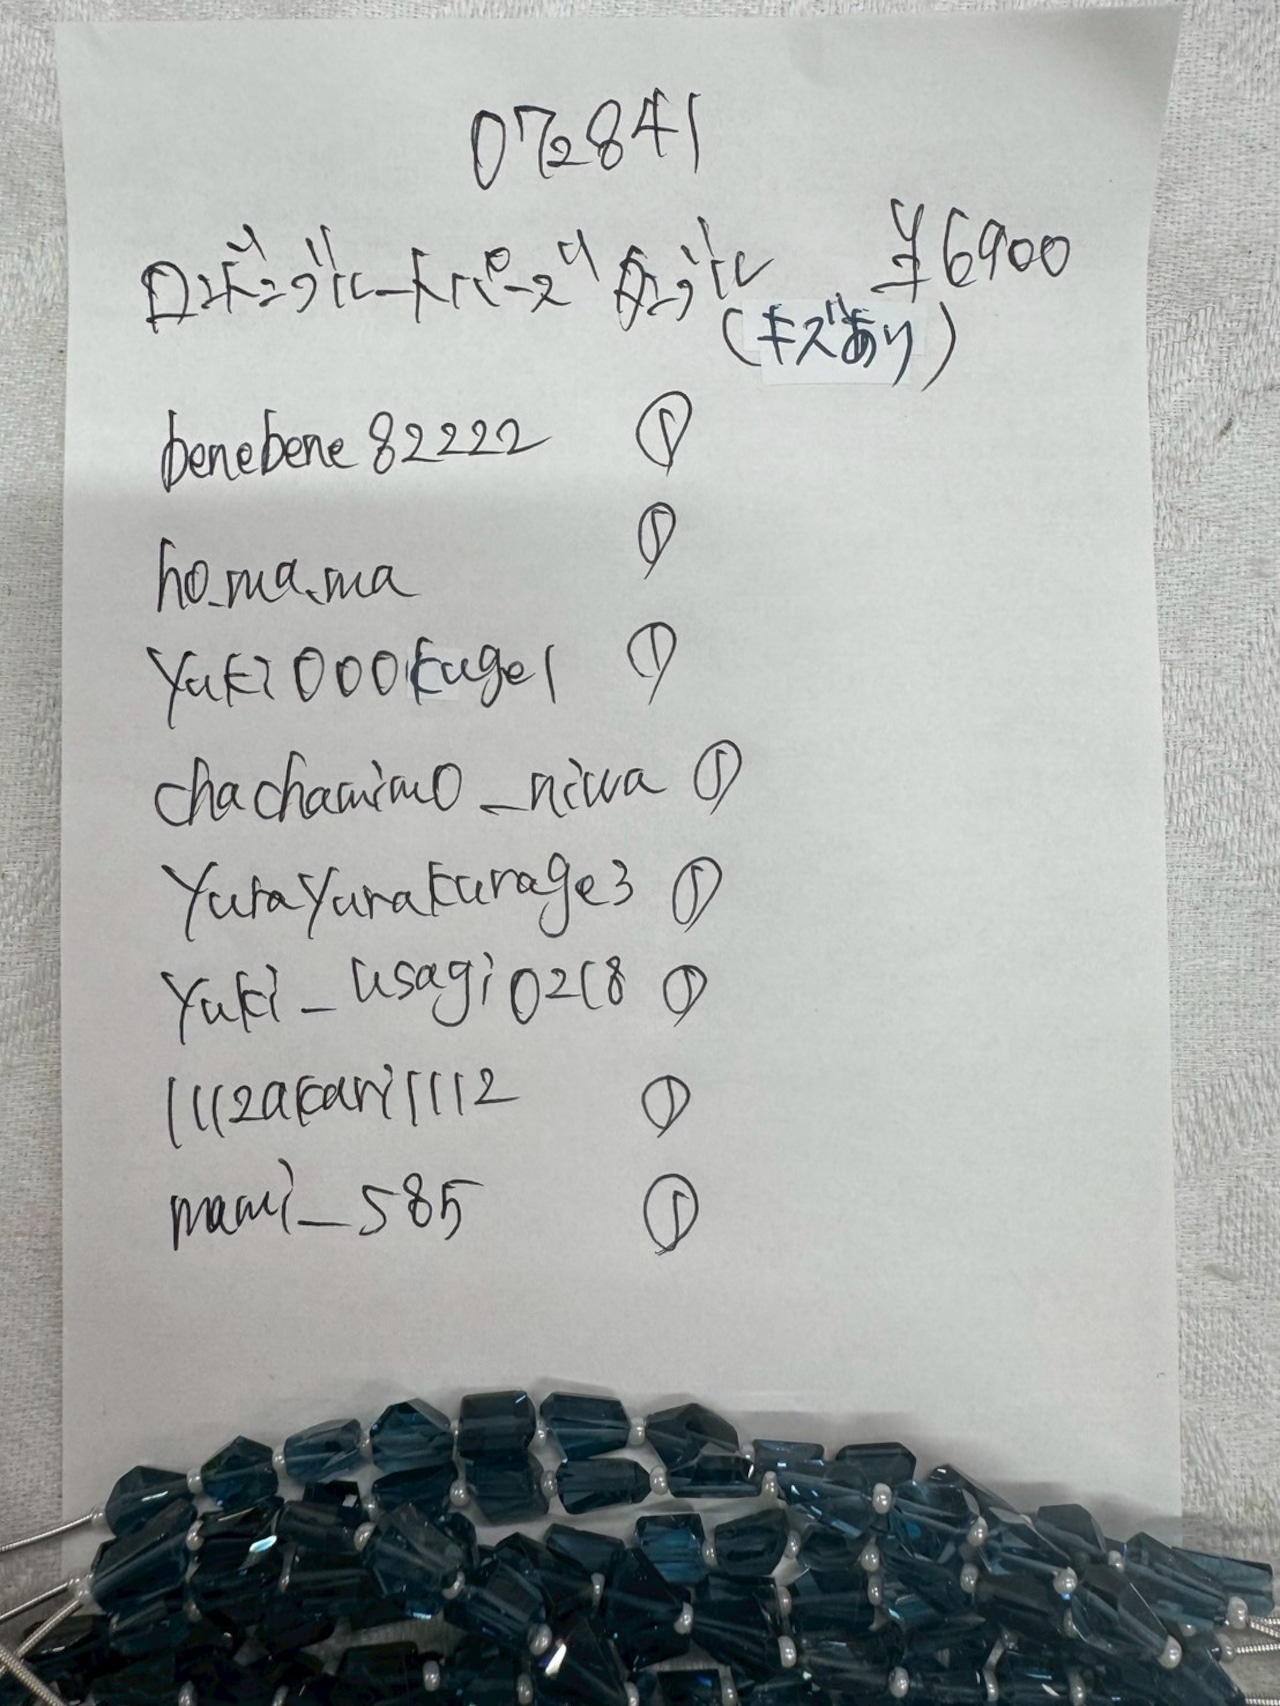 072841
ロンドンブルートパーズ タンブル ¥6900
(キズあり)
benebene82222 ①
ho_ma.ma ①
yuki000kuge1 ①
chachamimo_niwa ①
yurayurakurage3 ①
yuki_usagi0218 ①
1112akari1112 ①
mami_585 ①